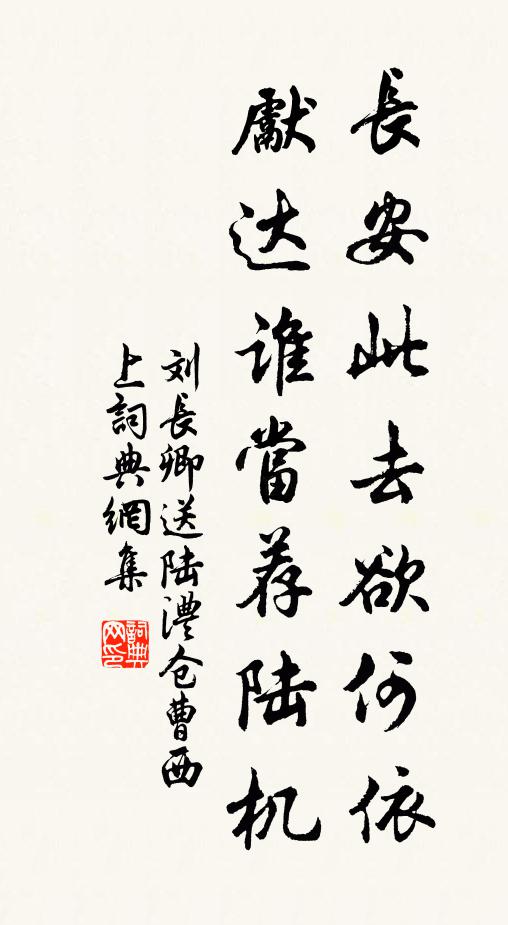 長安此去欲何依
獻达谁當荐陆机
刘長卿送陆澧仓曹西
上詞典網集
詞典网印